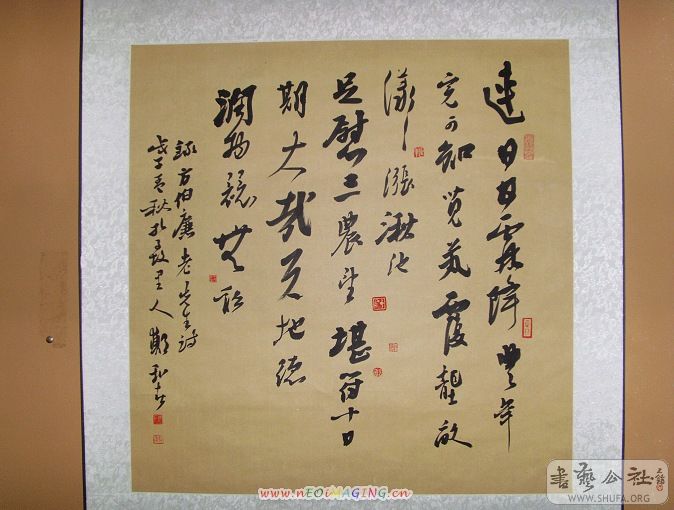 連日甘霖降豐年
定可知芃芃覆壠畝
漾漾漲湫池
足慰三農望堪符十日
期大哉天地德
潤物總無私
錄方伯廉老先生詩
戊子 秋於 里人鄭
www.nEOiMAGING.cn
書藝公社
WWW.SHUFA.ORG